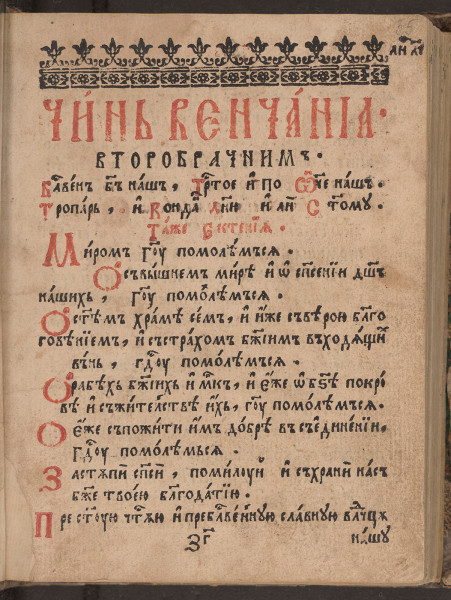 ЧИ́НЬ ВЕНЧА́НІѦ·
ВТОРОБРАЧНИМЪ·
Бл҃ве́нъ Бъ҃ на́шъ, Тр҃тое и҆ по Ѿ҃че на́шъ.
Тропа́рь, и҆ Конда́ дн҃ю и҆ ст҃ому.
Та́же Ектені́ѧ.
Ми́ромъ гд҃оу помо́лѣмъсѧ.
О съвы́шнемъ ми́рѣ и҆ ѡ҆ сп҃се́нїи дш҃ъ
на́шихъ, гд҃оу помо́лѣмъсѧ.
О ст҃ѣмъ хра́мѣ се́мъ, и҆ и҆́же съвѣ́рою бл҃го
говѣ́нїемъ, и҆ състра́хомъ бж҃їимъ въходѧ́щий
въ́нь, гд҃оу помо́лѣмъсѧ.
О рабѣ́хъ бж҃їихъ и҆́мк҃, и҆ е҆́же покро́
вѣ и҆ съжи́телствѣ и҆́хъ, гд҃оу помо́лѣмъсѧ.
О е҆́же съпожи́ти и҆́мъ до́брѣ въсъедине́нїи,
гд҃оу помо́лѣмьсѧ.
Застꙋпи́ сп҃си́, поми́лоуй и҆ съхрани́ на́съ
бж҃е твое́ю бл҃года́тїю.
Прест҃оую чт҃ꙋю и҆ пребл҃ве́ннꙋю сла́вную влч҃цꙋ
на́шу